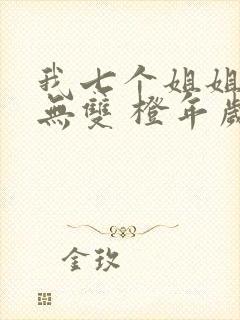 我七个姐姐
無雙 橙年歲
金玫